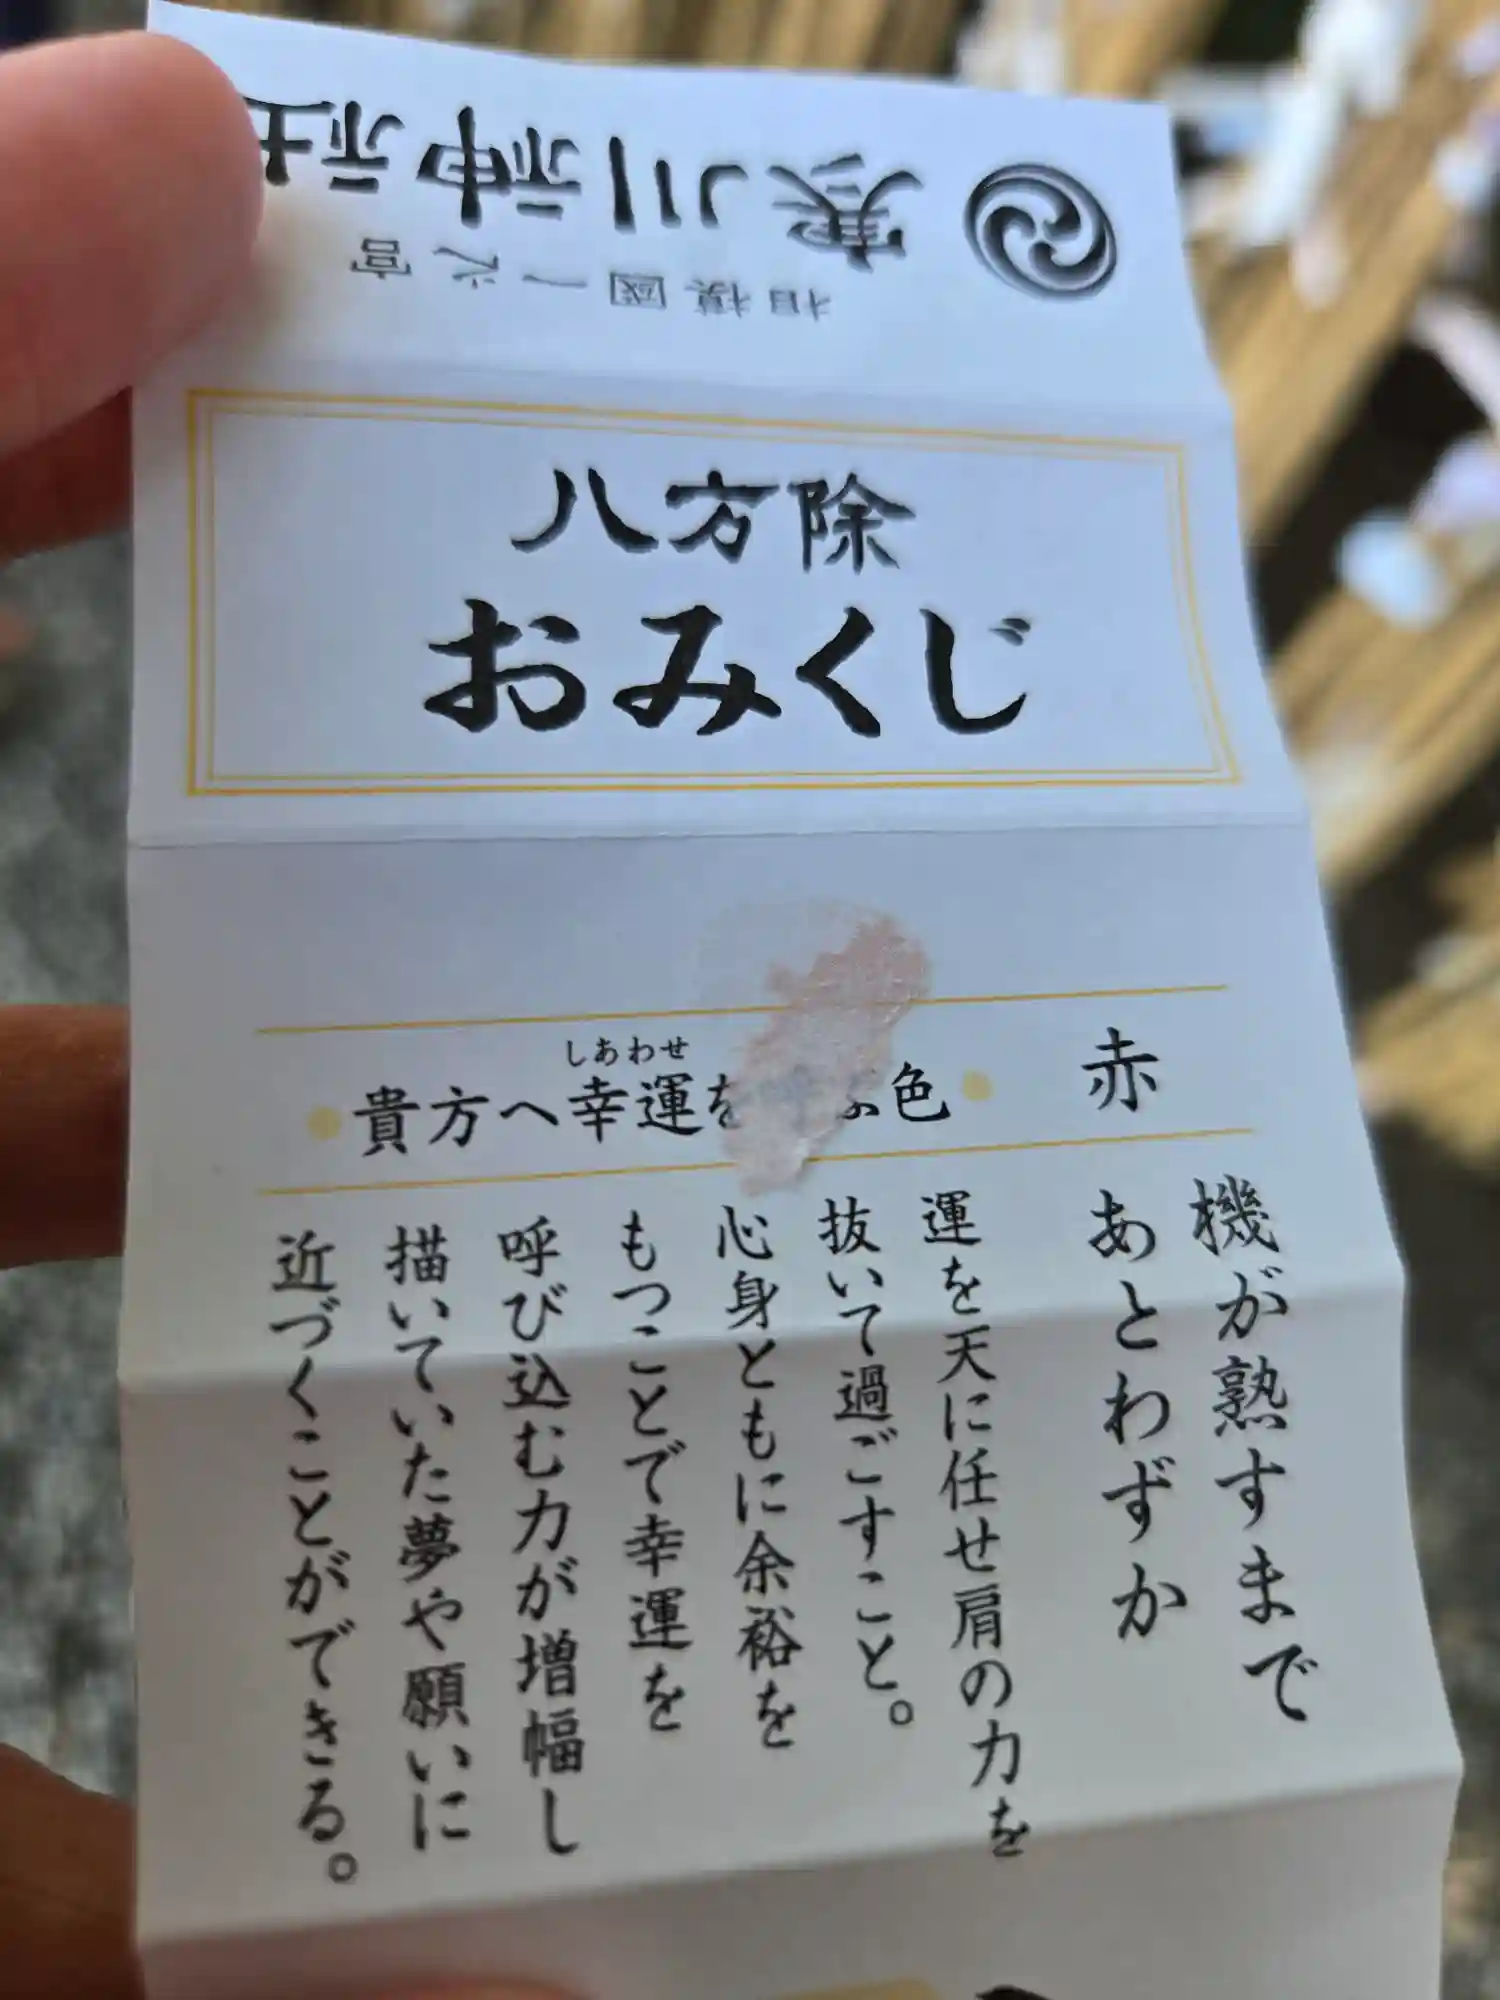 寒川神社
相模國一之宮
八方除
おみくじ
しあわせ
貴方へ幸運を呼ぶ色
赤
機が熟すまで
あとわずか
運を天に任せ肩の力を
抜いて過ごすこと。
心身ともに余裕を
もつことで幸運を
呼び込む力が増幅し
描いていた夢や願いに
近づくことができる。